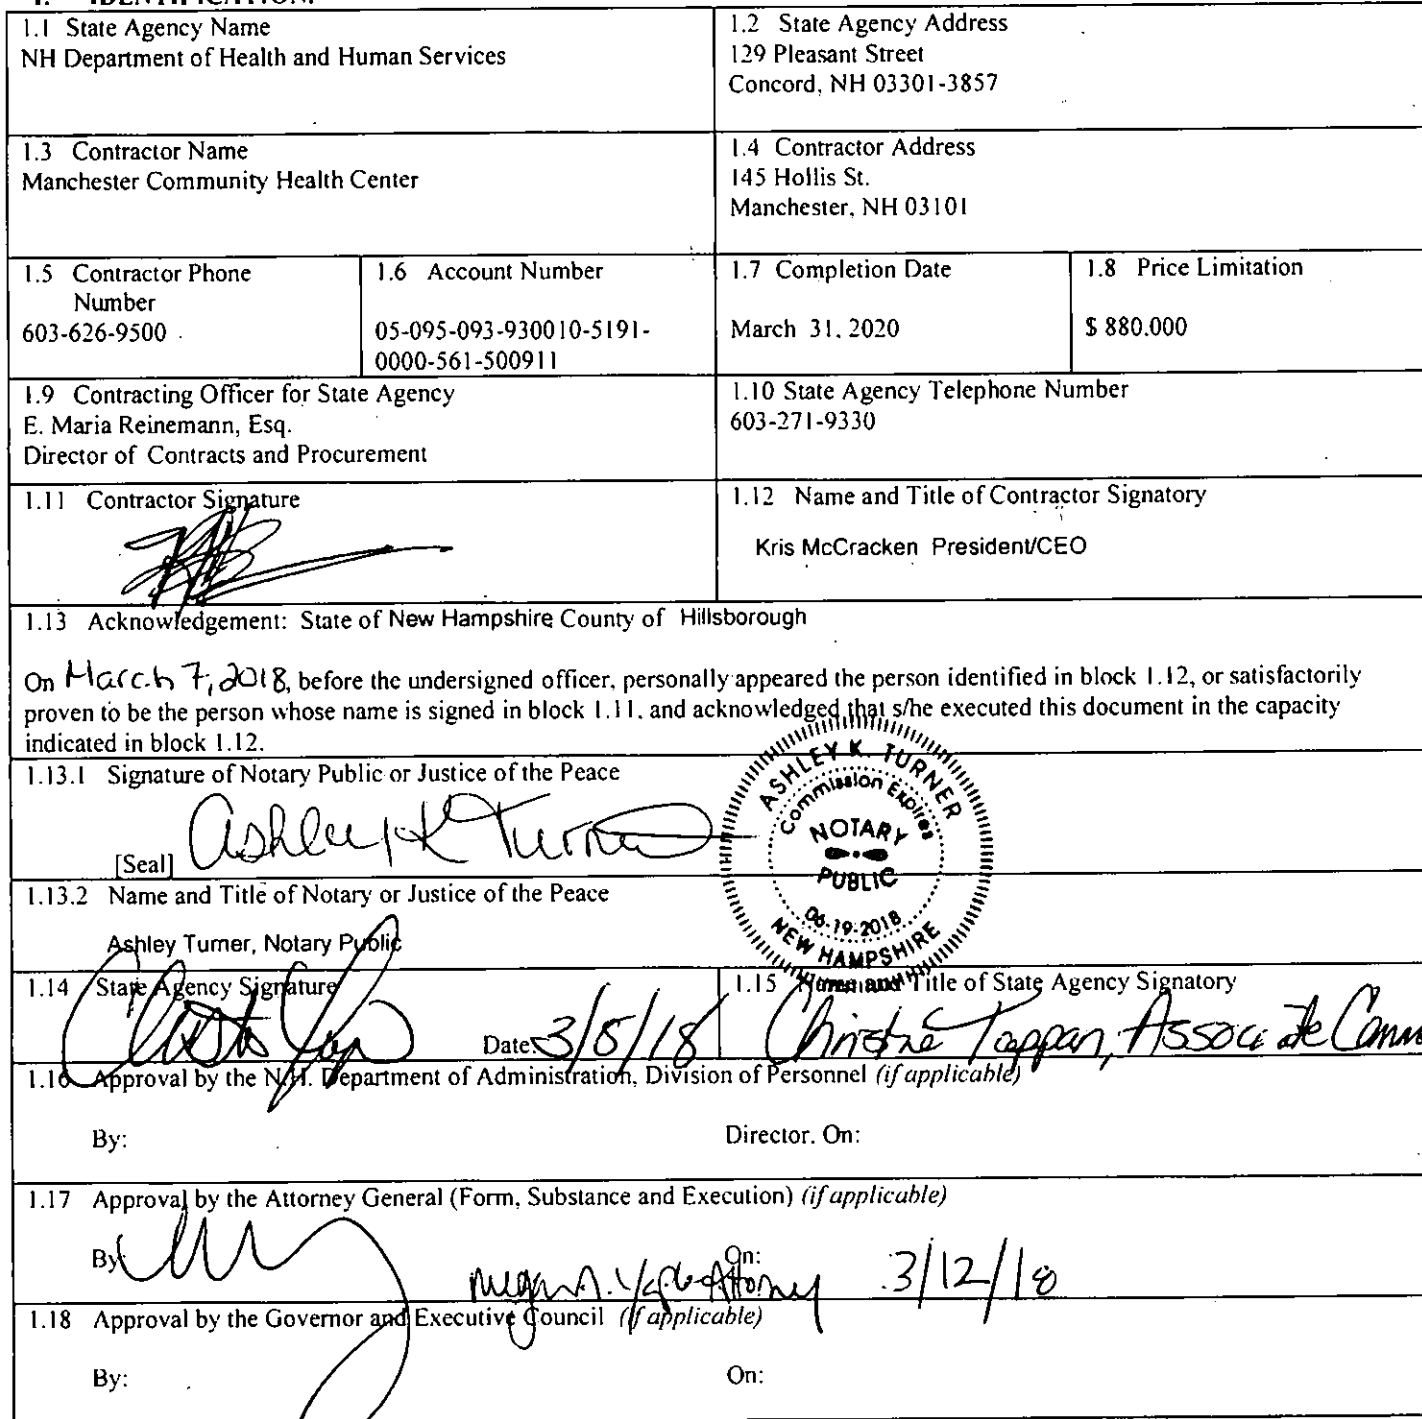 1.1 State Agency Name
NH Department of Health and Human Services
1.2 State Agency Address
129 Pleasant Street
Concord, NH 03301-3857
1.3 Contractor Name
Manchester Community Health Center
1.4 Contractor Address
145 Hollis St.
Manchester, NH 03101
1.5 Contractor Phone
Number
603-626-9500
1.6 Account Number
05-095-093-930010-5191-
0000-561-500911
1.7 Completion Date
March 31, 2020
1.8 Price Limitation
$ 880.000
1.9 Contracting Officer for State Agency
E. Maria Reinemann, Esq.
Director of Contracts and Procurement
1.10 State Agency Telephone Number
603-271-9330
1.11 Contractor Signature
1.12 Name and Title of Contractor Signatory
Kris McCracken President/CEO
1.13 Acknowledgement: State of New Hampshire County of Hillsborough
On March 7, 2018, before the undersigned officer, personally appeared the person identified in block 1.12, or satisfactorily
proven to be the person whose name is signed in block 1.11, and acknowledged that s/he executed this document in the capacity
indicated in block 1.12.
1.13.1 Signature of Notary Public or Justice of the Peace
[Seal] Ashley K Turner
ASHLEY K. TURNER
Commission Expires
NOTARY
PUBLIC
06-19-2018
NEW HAMPSHIRE
1.13.2 Name and Title of Notary or Justice of the Peace
Ashley Turner, Notary Public
1.14 State Agency Signature
Date: 3/8/18
1.15 Name and Title of State Agency Signatory
Christine Tappan, Associate Comm
1.16 Approval by the N.H. Department of Administration, Division of Personnel (if applicable)
By:
Director, On:
1.17 Approval by the Attorney General (Form, Substance and Execution) (if applicable)
By:
On:
Attorney 3/12/18
1.18 Approval by the Governor and Executive Council (if applicable)
By:
On: